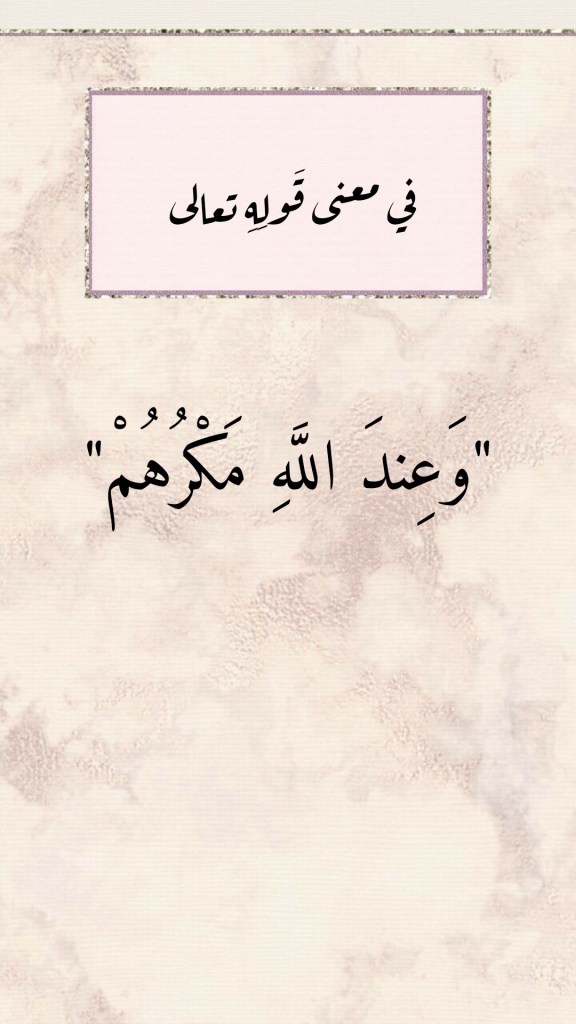 في معنى قَولِهِ تعالى
"وَعِندَ اللَّهِ مَكْرُهُمْ"